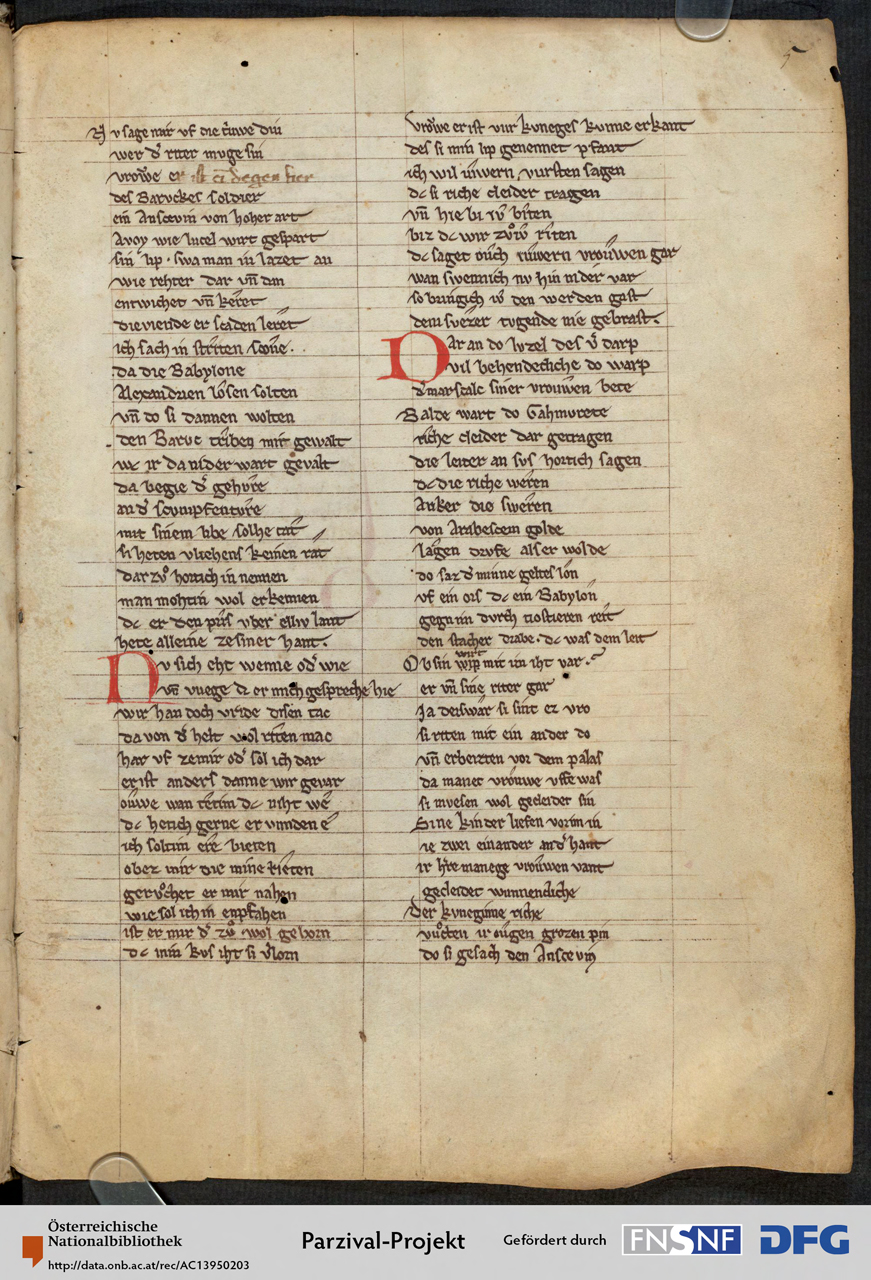 5
Nv sage mir vf die triwe din
wer d͛ riter mvge sin
vrowe er ist ein degen fier
des Barvckes soldier
ein Anscevin von hoher art
Avoy wie lvcel wirt gespart
sin lip · swa man in lazet an
wie rehter dar vn̄ dan
entwichet vn̄ keret
die viende er scaden leret
ich sach in striten scone ·
da die Babylone
Alexandrien losen solten
vn̄ do si dannen wolten
den Barvc triben mit gewalt
waz ir da nider wart gevalt
da begie d͛ gehvre
an d͛ scvmpfentvre
mit sinem libe solhe tat
si heten vliehens keinen rat
dar zvͦ hortich in nennen
man mohtin wol erkennen
dc er den pris vber elliv lant
hete alleine zesiner hant ·
Nv sich eht wenne od͛ wie
vn̄ vuege dc er mich gespreche hie
wir han doch vride disen tac
da von d͛ helt wol riten mac
har vf zemir od͛ sol ich dar
er ist anders danne wir gevar
ouwe wan tetim dc niht we
dc hetich gerne ervunden e
ich soltim ere bieten
obez mir die mine rieten
gervͦchet er mir nahen
wie sol ich in enpfahen
ist er mir d͛ zvͦ wol geborn
dc min kvs iht si v͛lorn
vrowe er ist vur kvneges kvnne erkant
des si min lip genennet pfant
ich wil iuwern vursten sagen
dc si riche cleider tragen
vn̄ hie bi iv biten
biz dc wir zvͦ iv riten
dc saget ouch iuwern vrouwen gar
wan swennich nv hin nider var
so bringich iv den werden gast
dem svezer tvgende nie gebrast ·
Dar an do lvzel des v͛darp
vil behendecliche do warp
d͛ marscalc siner vrouwen bete
Balde wart do Gahmvrete
riche cleider dar getragen
die leiter an svs hortich sagen
dc die riche weren
Anker die sweren
von Arabescem golde
lagen drvfe als er wolde
do saz d͛ minne geltes lon
vf ein ors dc ein Babylon
gegn im dvrch tiostieren reit
den stacher drabe · dc was dem leit
Ob sin wirt wirt mit im iht var ·
er vn̄ sine riter gar
Ja deiswar si sint ez vro
si riten mit ein ander do
vn̄ erbeizten vor dem palas
da manec vrouwe vffe was
si mvesen wol gecleidet sin
Sine kinder liefen vor im in
ie zwei einander an d͛ hant
ir h͛re manege vrouwen vant
gecleidet wunnencliche
Der kvneginne riche
vuͦcten ir ougen grozen pin
do si gesach den Anscevin
Österreichische
Nationalbibliothek
http://data.onb.ac.at/rec/AC13950203
Parzival-Projekt
Gefördert durch
FNSNF
DFG